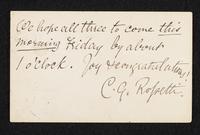 We hope all three to come this
morning Friday by about
1 o'clock. Joy & congratulations!
C. G. Rossetti.